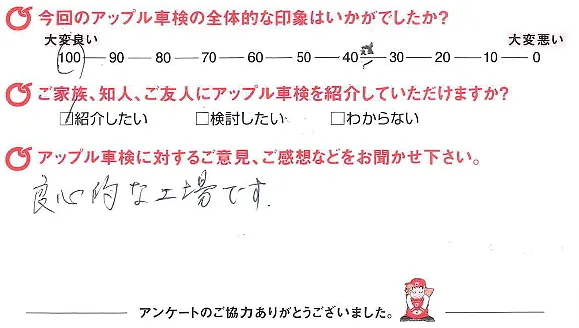 今回のアップル車検の全体的な印象はいかがでしたか?
大変良い 大変悪い
100 90 80 70 60 50 40 30 20 10 0
ご家族、知人、ご友人にアップル車検を紹介していただけますか?
□紹介したい □検討したい □わからない
アップル車検に対するご意見、ご感想などをお聞かせ下さい。
良心的な工場です.
アンケートのご協力ありがとうございました。